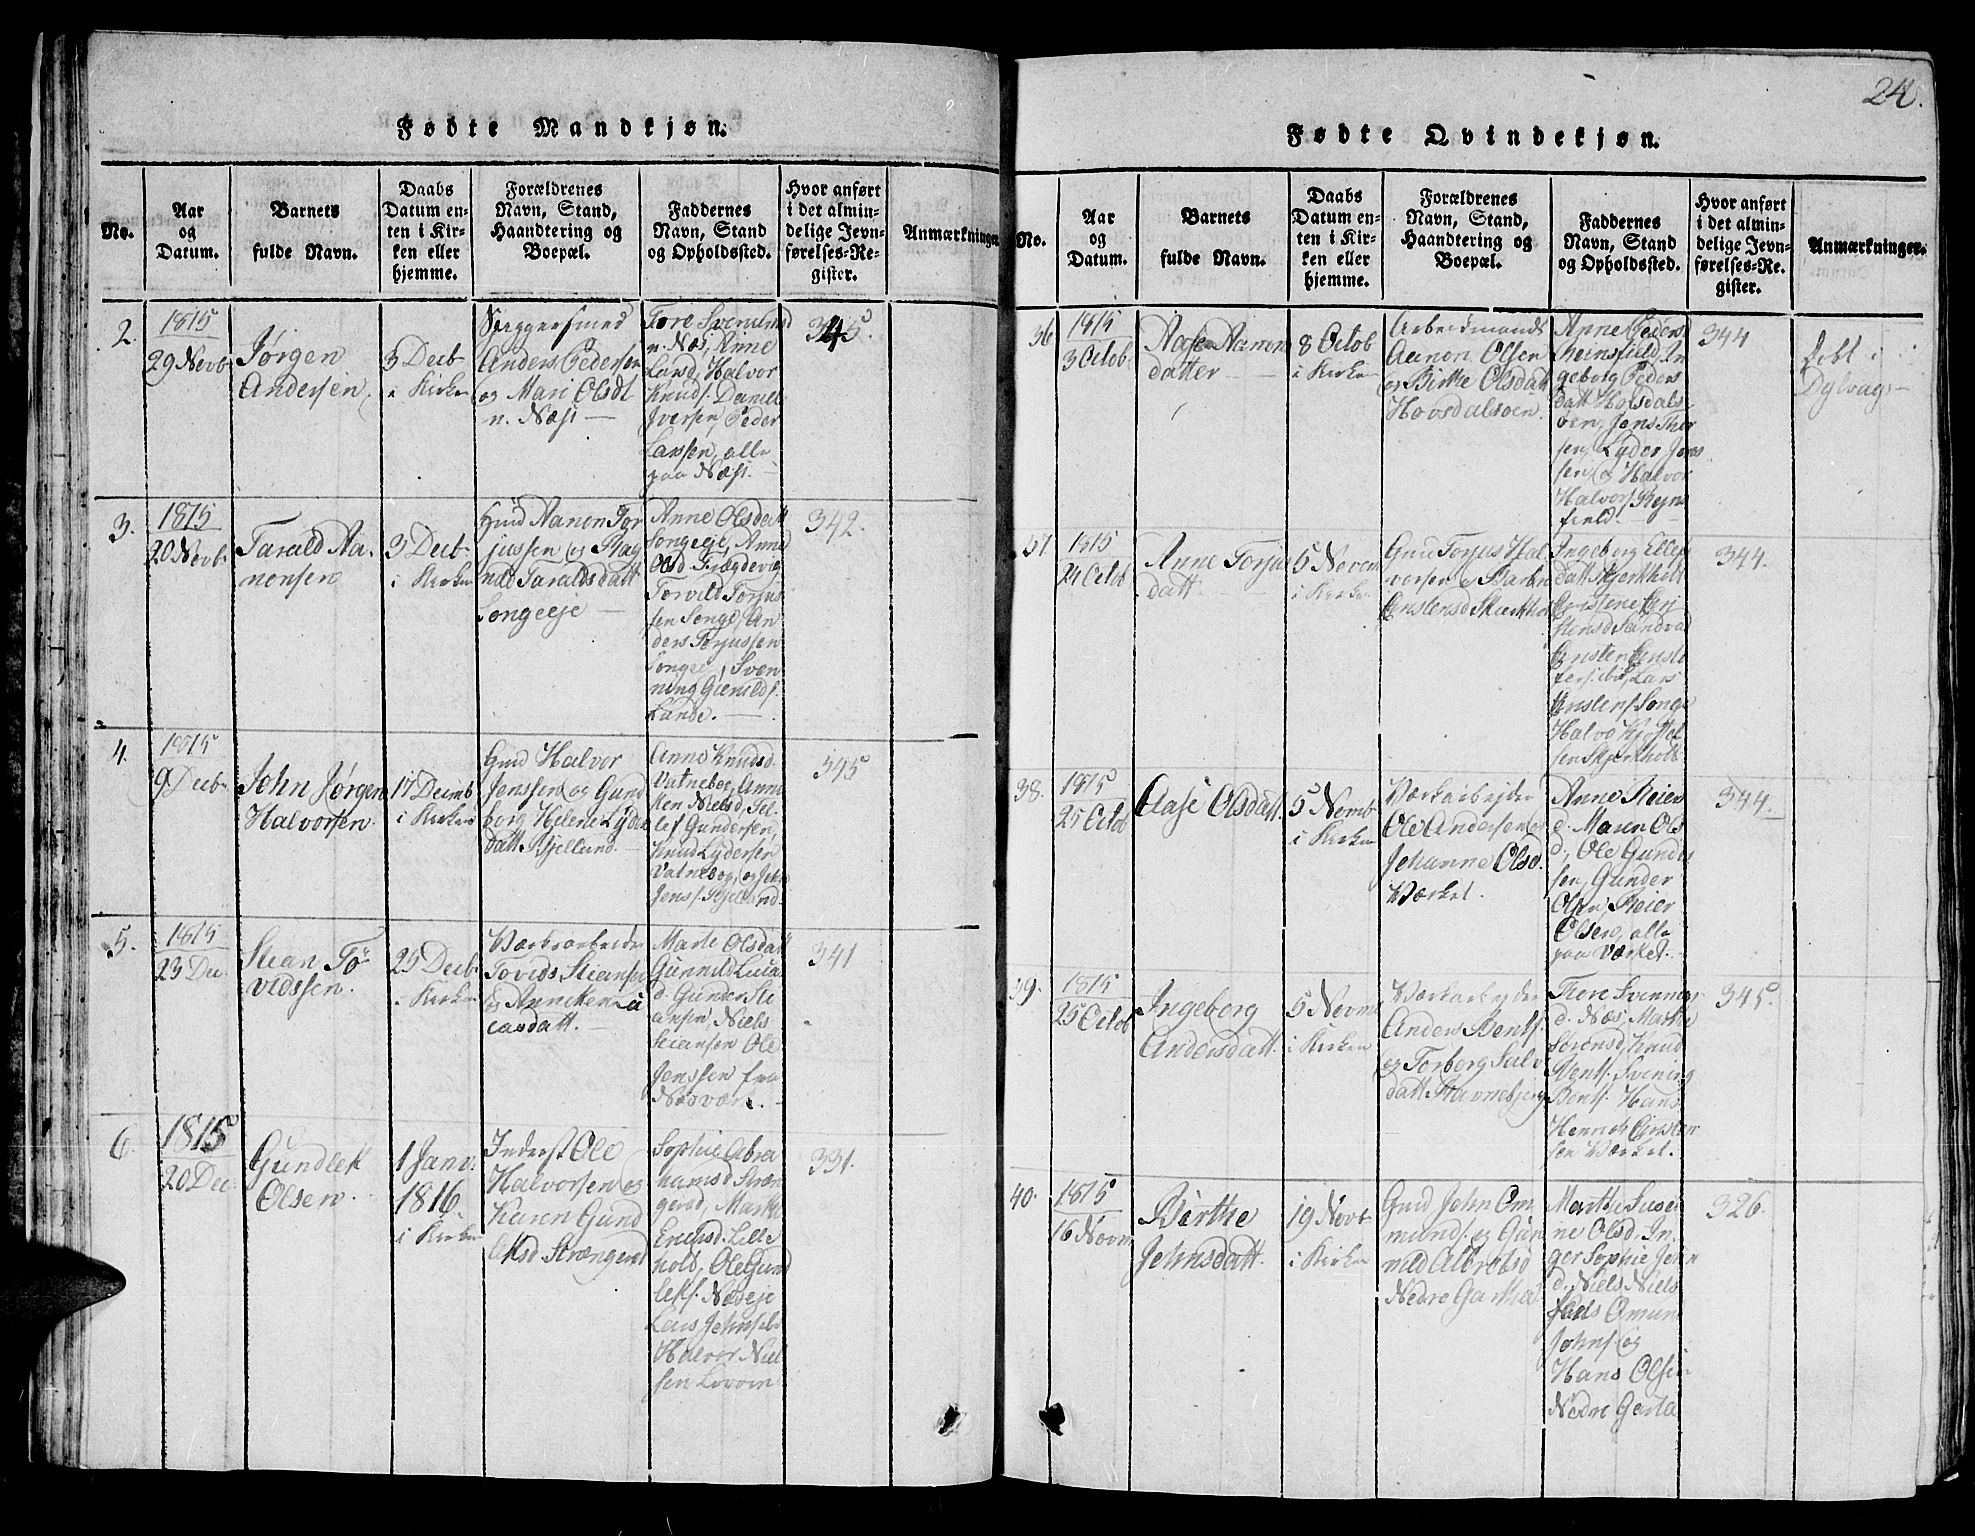 Fødte Mandkjøn.
No.
Aar
og
Datum.
Barnets
fulde Navn.
Daabs
Datum en-
ten i Kir-
ken eller
hjemme.
Forældrenes
Navn, Stand,
Haandtering og
Boepæl.
Faddernes
Navn, Stand
og Opholdssted.
Hvor anført
i det almin-
delige Jevn-
førelses-Re-
gister.
Anmærkninger
2.
1815
29 Novb
Jørgen
Andersen
3 Decb
i Kirken
Anders Pedersen
og Mari Olsdt
n. Næs
Tore
n. Næs, Anne
Land, Halvor
Knuds. Daniel
Iversen, Peder
Larsen, alle
paa Næs.
345.
3.
1815
20 Novb
Tarald Aa-
nonsen
3 Decb
i Kirken
Gmd Aanon Tor
jussen og Rag
nild Taraldsdatt
Songeeje
Anne Olsdatt
Songeeje, Anne
Torvild Torjus
sen Songe, An
ders Torjussen
Songe, Sven
ning
Lunde.
342.
4.
1815
9 Decb
John Jørgen
Halvorsen
17 Decmb
i Kirken
Gmd Halvor
Jenssen og Gund
borg Helene Lyder
datt. Kjellund
Anne Knudsd
Vatnebo, Anne
ken Nielsd,
lef Gundersen,
Knud Lydersen
Vatnebo, og John
Jens.
345
5.
1815
23 Dec
Stean To
vidssen.
25 Decb
i Kirken
Værksarbeider
Tovids Steansen
og Anneken Lu
casdatt.
Marte Olsdatt
Gunnild Luca
d. Gunder Ste
ansen, Niels
Steansen Ole
Jenssen fra
Næsværk.
341
6.
1815
20 Dec
Gundlek
Olsen
1 Janv.
1816.
i Kirken
Inderst Ole
Halvorsen og
Karen Gund
leksd Strængerei
Sophie Abra
hamsd Stræn
gered, Marthe
Ericksd. Lille
hold, Ole Gund
leks. Næseje
Halvor Niel
sen
331.
24.
Fødte Qvindekjøn.
No.
Aar
og
Datum.
Barnets
fulde Navn.
Daabs
Datum en-
ten i Kir-
ken eller
hjemme.
Forældrenes
Navn, Stand,
Haandtering og
Boepæl.
Faddernes
Navn, Stand
og Opholdssted.
Hvor anført
i det almin-
delige Jevn-
førelses-Re-
gister.
Anmærkninger.
36
1815
3 Octob
Aase Aanon
datter
8 Octob
i Kirken
Arbeidmands
Aanon Olsen
og Birthe Olsdatt
Hovsdalsoen.
Anne Peders
Reinsfield, In
geborg Peders
datt Hofsdals
oen, Jens Thor
sen, Lyder Jens
sen og Halvor
Halvors. Rejns
field.
344
født i
Dylvag
37
1815
24 Octob
Anne Torjus
datt
5 Novem
i Kirken
Gmd Torjus Hal
vorsen og Karen
Cristensd Skierkholt
Ingeborg Ellef
datt Skjerkholt
stensd Sandvad
Lars
Cristens. Songe
Halvo Kjøstel
sen Skjerkholt
344.
38.
1815
25 Octob
Aase Olsdatt.
5 Novmb
i Kirken
Værkarbejder
Ole Andersen og
Johanne Olsd.
Værket.
Anne Reier
d. Maren Ols
d, Ole Gunder
sen, Gunder
Olsen, Reier
Olsen, alle
paa Værket.
344.
39.
1815
25 Octob
Ingeborg
Andersdatt.
5 Novmb
i Kirken
Værkarbejder
Anders Bents.
og Torborg Salv
datt Havnebjerg
Thore Svennings
d. Næs, Marthe
Sørensd, Knud
Bents. Svening
Bents. Hans
Hennich Cristen
sen Værket.
345.
40.
1815
16 Novm
Birthe
Johnsdatt.
19 Novb
i Kirken
Gmd John Om
munds. og Gun
nild Albretsd
Nedre Garta
Marthe Susen
ne Olsd. In
ger Sophie John
d. Niels Niels
Omun
Johns. og
Hans Olsen
Nedre Garta
326.